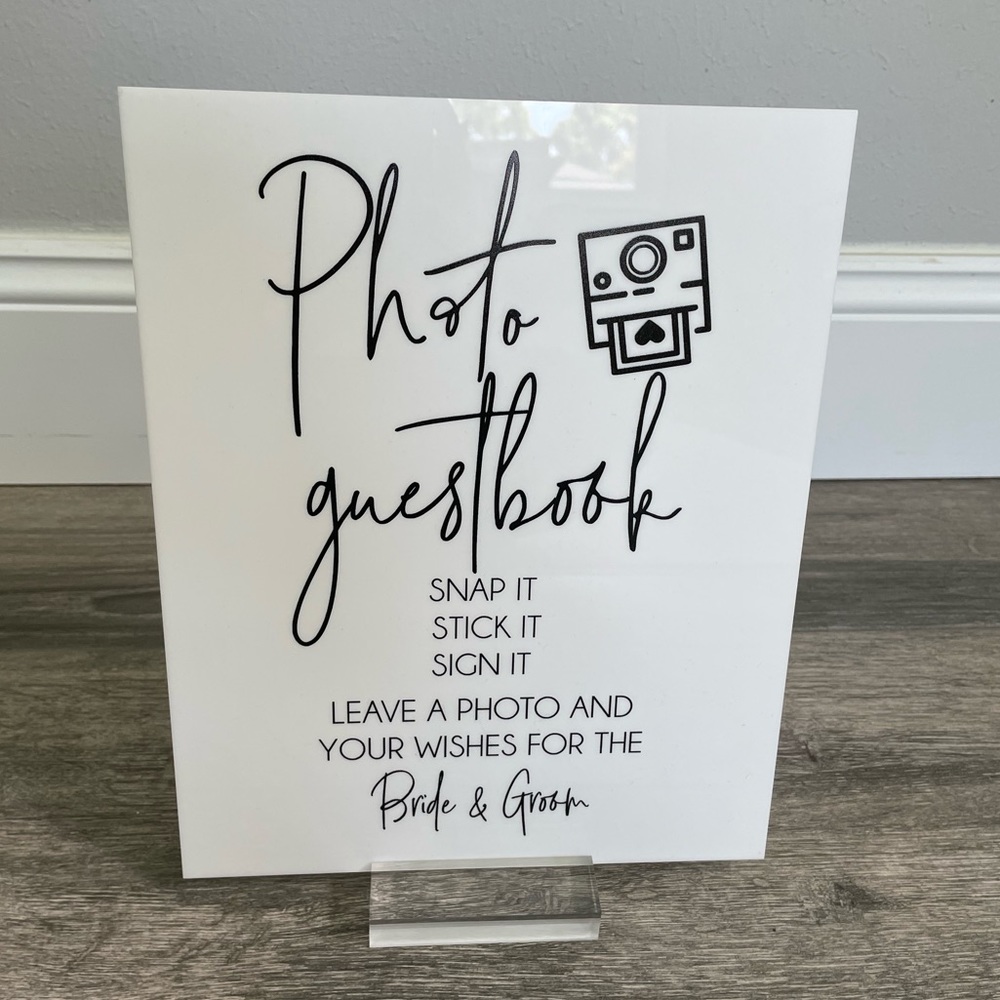 Photo
guestbook
SNAP IT
STICK IT
SIGN IT
LEAVE A PHOTO AND
YOUR WISHES FOR THE
Bride & Groom